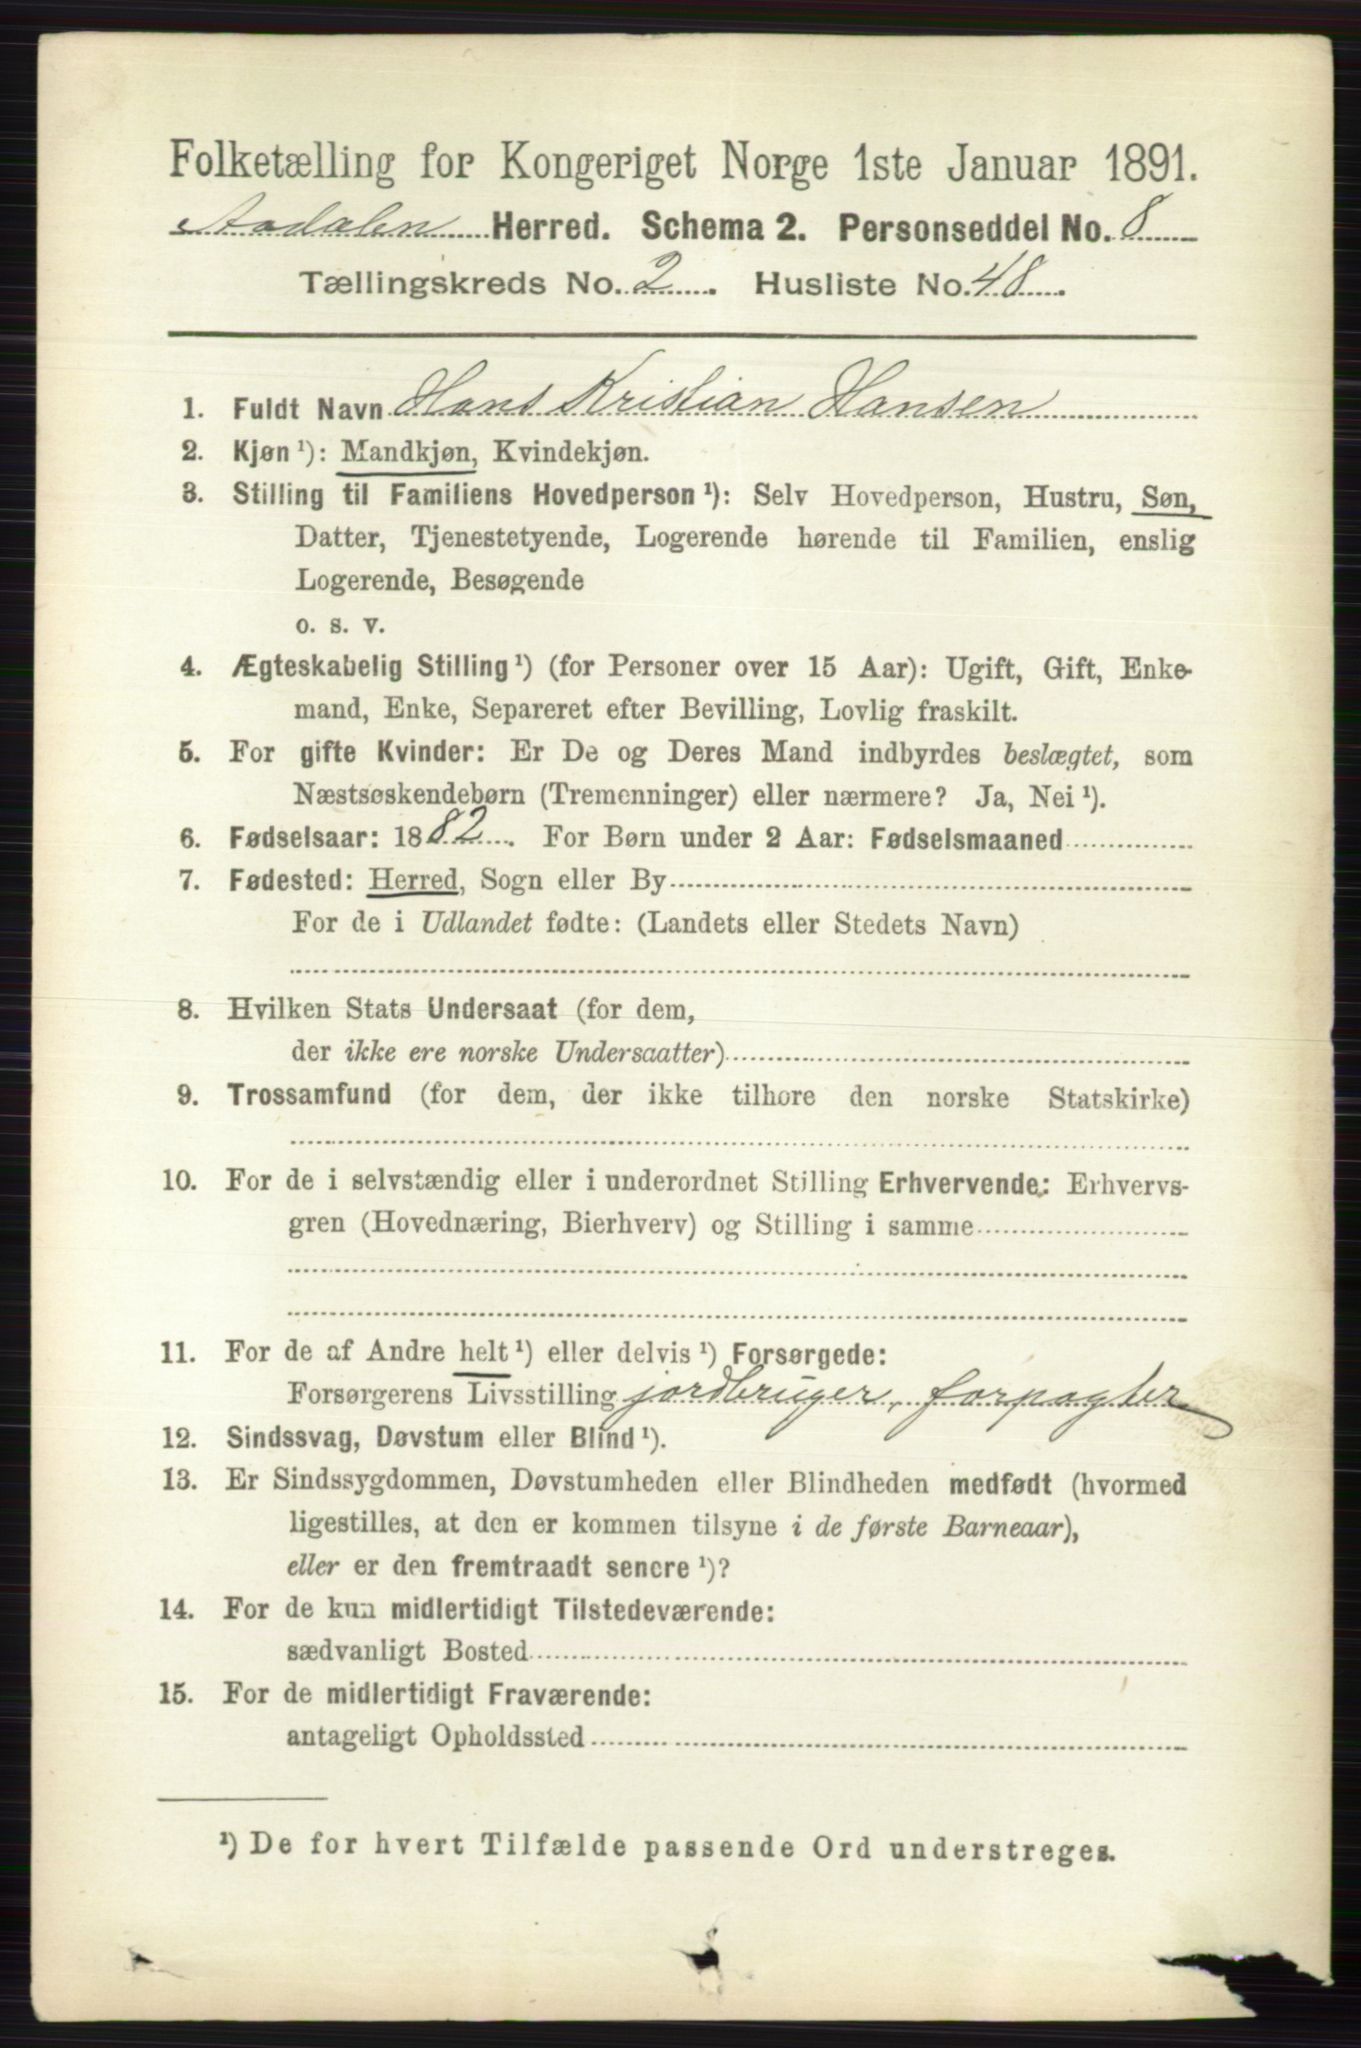 Folketælling for Kongeriget Norge 1ste Januar 1891.
Aadalen Herred. Schema 2. Personseddel No. 8
Tællingskreds No. 2. Husliste No. 48.
1. Fuldt Navn Hans Kristian Hansen
2. Kjøn ¹): Mandkjøn, Kvindekjøn.
3. Stilling til Familiens Hovedperson ¹): Selv Hovedperson, Hustru, Søn,
Datter, Tjenestetyende, Logerende hørende til Familien, enslig
Logerende, Besøgende
o. s. v.
4. Ægteskabelig Stilling ¹) (for Personer over 15 Aar): Ugift, Gift, Enke-
mand, Enke, Separeret efter Bevilling, Lovlig fraskilt.
5. For gifte Kvinder: Er De og Deres Mand indbyrdes beslægtet, som
Næstsøskendebørn (Tremenninger) eller nærmere? Ja, Nei ¹).
6. Fødselsaar: 1882. For Børn under 2 Aar: Fødselsmaaned
7. Fødested: Herred, Sogn eller By
For de i Udlandet fødte: (Landets eller Stedets Navn)
8. Hvilken Stats Undersaat (for dem,
der ikke ere norske Undersaatter)
9. Trossamfund (for dem, der ikke tilhøre den norske Statskirke)
10. For de i selvstændig eller i underordnet Stilling Erhvervende: Erhvervs-
gren (Hovednæring, Bierhverv) og Stilling i samme
11. For de af Andre helt ¹) eller delvis ¹) Forsørgede:
Forsørgerens Livsstilling jordbruger, forpagter
12. Sindssvag, Døvstum eller Blind ¹).
13. Er Sindssygdommen, Døvstumheden eller Blindheden medfødt (hvormed
ligestilles, at den er kommen tilsyne i de første Barneaar),
eller er den fremtraadt senere ¹)?
14. For de kun midlertidigt Tilstedeværende:
sædvanligt Bosted
15. For de midlertidigt Fraværende:
antageligt Opholdssted
¹) De for hvert Tilfælde passende Ord understreges.